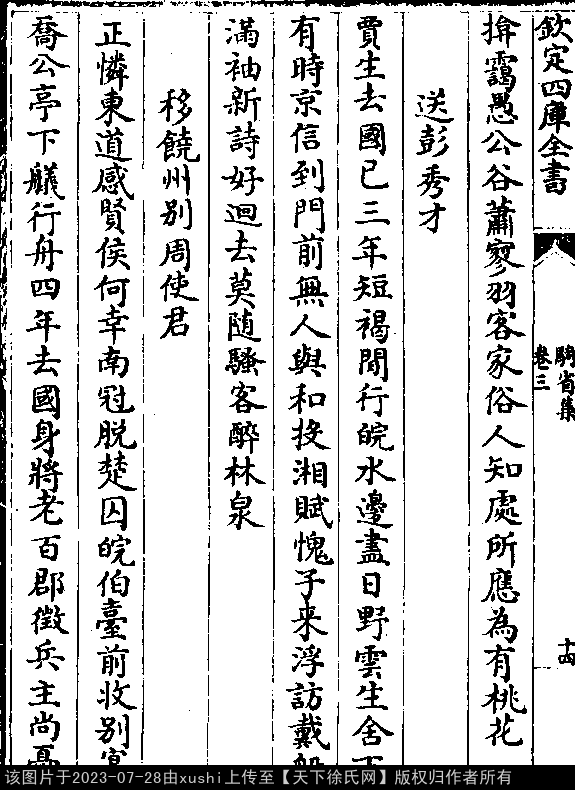 欽定四庫全書
騎省集
卷三
十四
揜靄愚公谷蕭寥羽客家俗人知處所應為有桃花
送彭秀才
賈生去國已三年短褐閒行皖水邊盡日野雲生舍下
有時京信到門前無人與和投湘賦愧子来浮訪戴船
滿袖新詩好迴去莫随騷客醉林泉
移饒州别周使君
正憐東道感賢侯何幸南冠脱楚囚皖伯臺前收别宴
喬公亭下艤行舟四年去國身將老百郡徵兵主尚憂
该图片于2023-07-28由xushi上传至【天下徐氏网】版权归作者所有